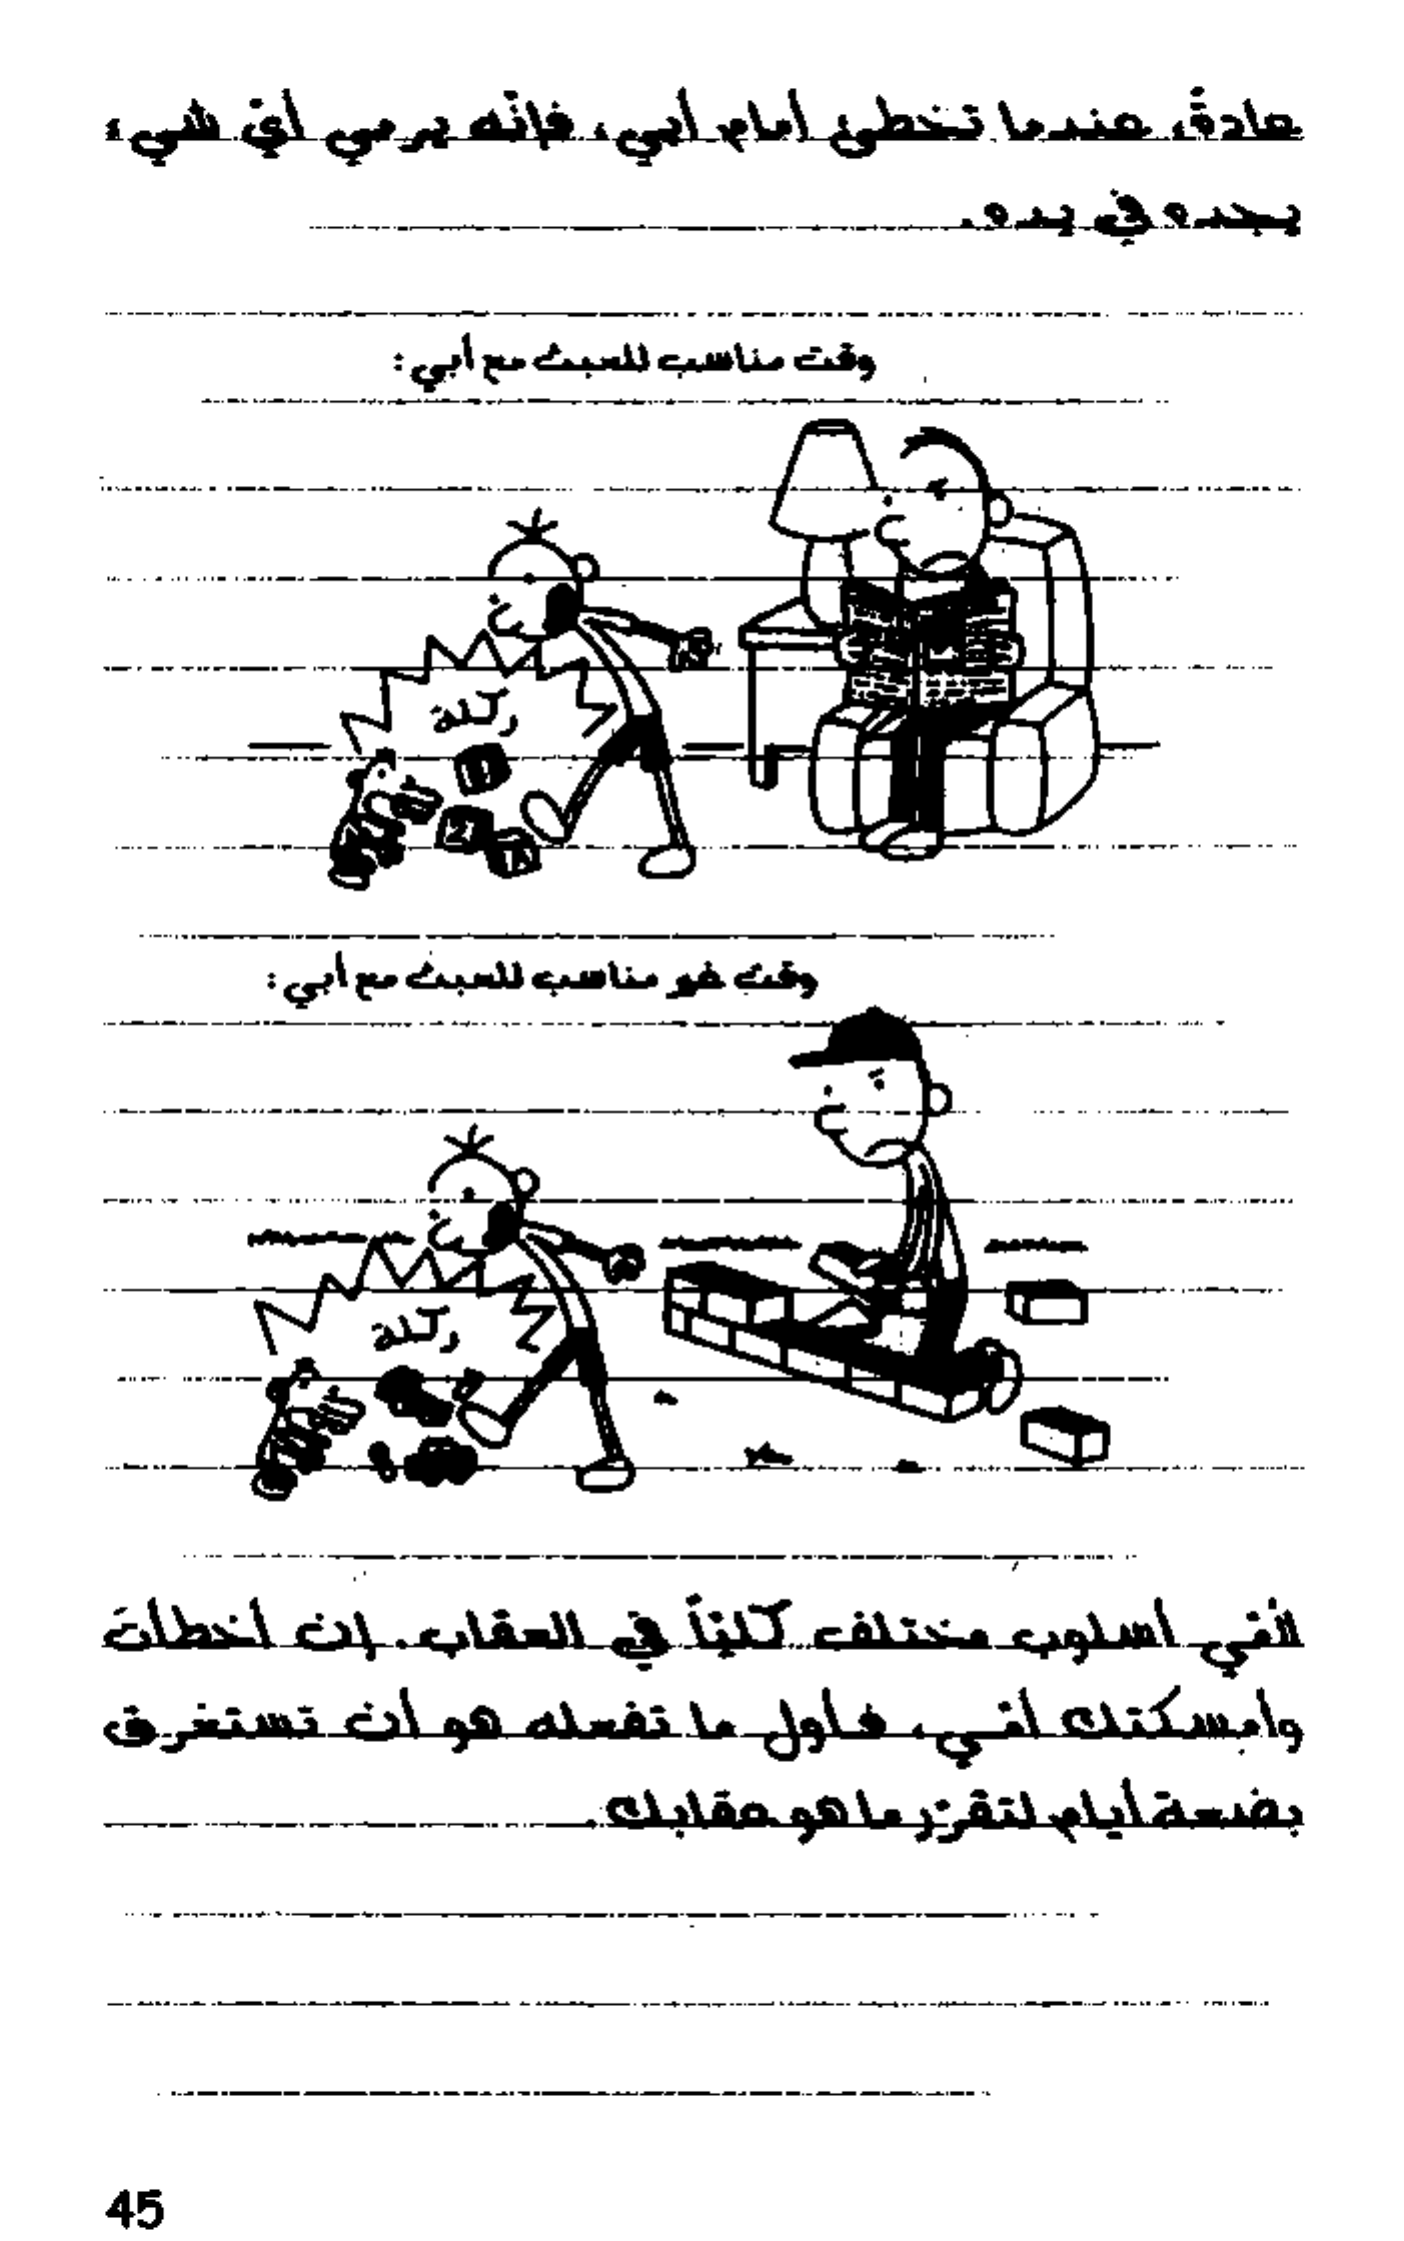 عادةً، عندما تخطئ أمام أبي، فإنّه يرمي أيّ شيء
يجده في يده.
وقت مناسب للعبث مع أبي:
ركلة
وقت غير مناسب للعبث مع أبي:
ركلة
لأمّي أسلوب مختلف كليّاً في العقاب. إن أخطأتَ
وأمسكتك أمّي، فأول ما تفعله هو أن تستغرق
بضعة أيام لتقرّر ما هو عقابك.
45